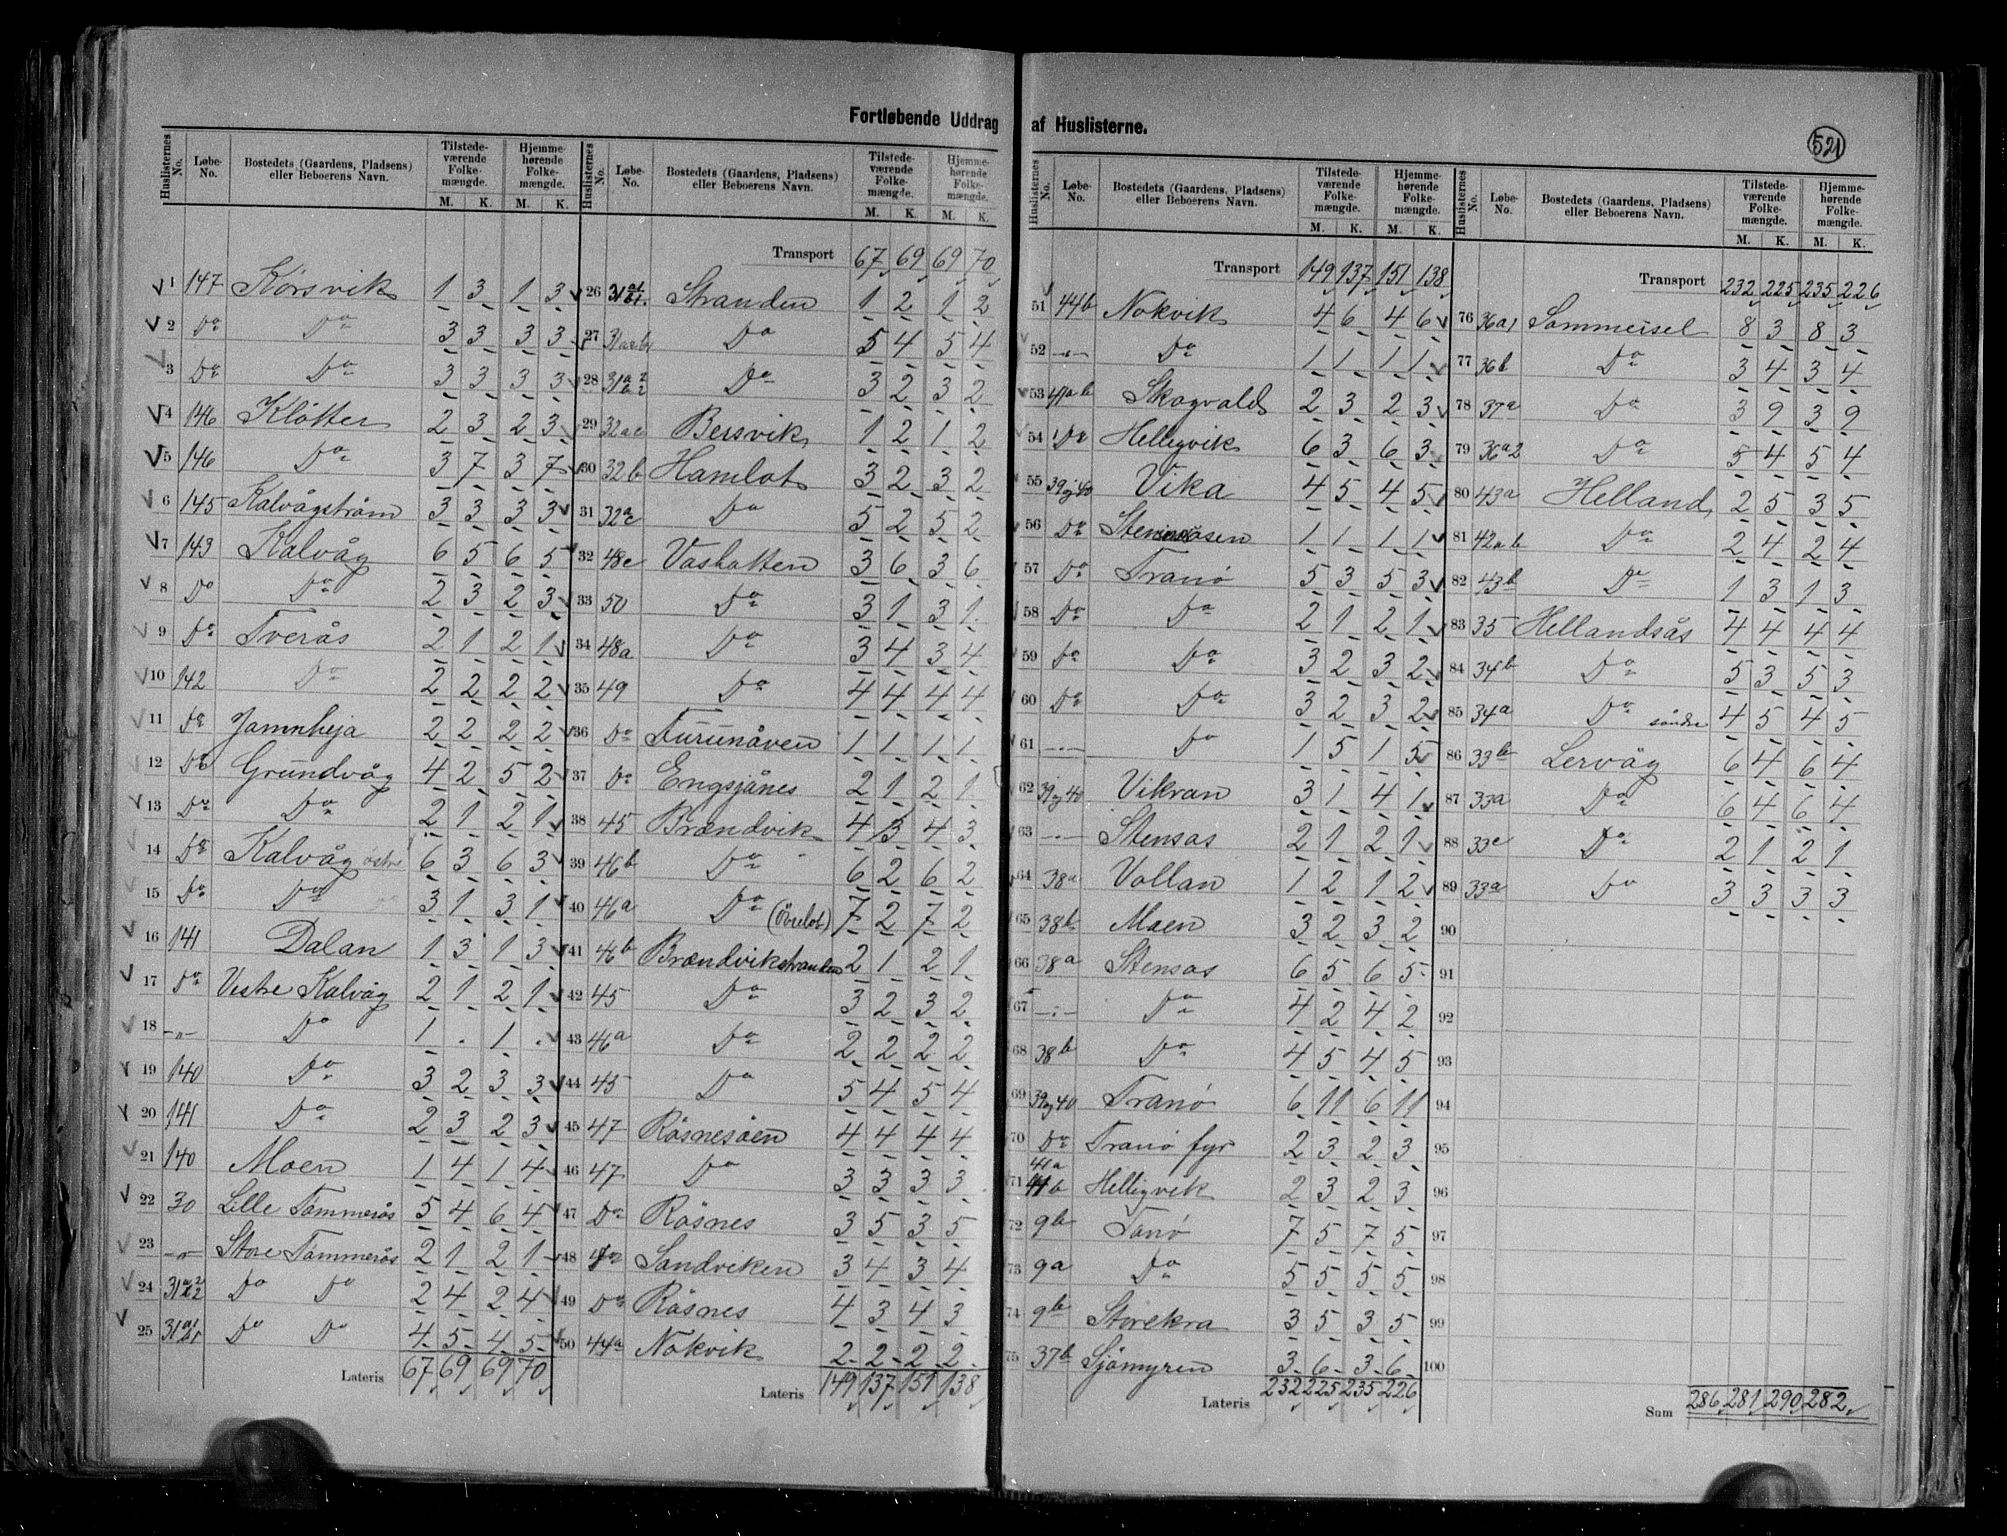 Fortløbende Uddrag af Huslisterne.
521
Huslisternes No. Løbe-No. Bostedets (Gaardens, Pladsens) eller Beboerens Navn. Tilstedeværende Folkemængde. M. K. Hjemmehørende Folkemængde. M. K.
1 147 Körsvik 1 3 1 3
2 Do Do 3 3 3 3
3 Do Do 3 3 3 3
4 146 Klötter 2 3 2 3
5 146 Do 3 7 3 7
6 145 Kalvågstrøm 3 3 3 3
7 143 Kalvåg 6 5 6 5
8 Do Do 2 3 2 3
9 Do Tverås 2 1 2 1
10 142 Do 2 2 2 2
11 Do Jamnheja 2 2 2 2
12 Do Grundvåg 4 2 5 2
13 Do Do 2 1 2 1
14 Do Kalvåg östre 6 3 6 3
15 Do Do 3 1 3 1
16 141 Dalan 1 3 1 3
17 Do Vestre Kalvåg 2 1 2 1
18 -"- Do 1 . 1 .
19 140 Do 3 2 3 3
20 141 Do 2 3 2 3
21 140 Moen 1 4 1 4
22 30 Lille Tømmerås 5 4 6 4
23 -"- Store Tømmerås 2 1 2 1
24 31 a2 b2 Do Do 2 4 2 4
25 31 a1 b1 Do Do 4 5 4 5
Lateris 67 69 69 70
Huslisternes No. Løbe-No. Bostedets (Gaardens, Pladsens) eller Beboerens Navn. Tilstedeværende Folkemængde. M. K. Hjemmehørende Folkemængde. M. K.
Transport 67 69 69 70
26 31 a1 b1. Stranden 1 2 1 2
27 Do 5 4 5 4
28 31 a2 b2 Do 3 2 3 2
29 32ac Bersvik 1 2 1 2
30 32b Hamlot 3 2 3 2
31 32ac Do 5 2 5 2
32 48c Vashatten 3 6 3 6
33 50 Do 3 1 3 1
34 48a Do 3 4 3 4
35 49 Do 4 4 4 4
36 Do Furunåven 1 1 1 1
37 Do Engsjånes 2 1 2 1
38 45 Brændvik 4 3 4 3
39 46b Do 6 2 6 2
40 46a Do (övrelot) 7 2 7 2
41 46b Brændvikstranden 2 1 2 1
42 45 Do 3 2 3 2
43 46a Do 2 2 2 2
44 45 Do 5 4 5 4
45 47 Råsnesåen 4 4 4 4
46 47 Do 3 3 3 3
47 Do Råsnes 3 5 3 5
48 Do Sandviken 3 4 3 4
49 Do Råsnes 4 3 4 3
50 44a Nokvik 2 2 2 2
Lateris 149 137 151 138
Huslisternes No. Løbe-No. Bostedets (Gaardens, Pladsens) eller Beboerens Navn. Tilstedeværende Folkemængde. M. K. Hjemmehørende Folkemængde. M. K.
Transport 149 137 151 138
51 44b Nokvik 4 6 4 6
52 -"- Do 1 1 1 1
53 41ab Skogvold 2 3 2 3
54 Do Helligvik 6 3 6 3
55 39og40 Vika 4 5 4 5
56 Do 1 1 1 1
57 Do Tranø 5 3 5 3
58 Do Do 2 1 2 1
59 Do Do 3 2 3 2
60 Do Do 3 2 3 2
61 -"- Do 1 5 1 5
62 39og40 Vikran 3 1 4 1
63 -"- Stensås 2 1 2 1
64 38a Vollan 1 2 1 2
65 38b Moen 3 2 3 2
66 38a Stensås 6 5 6 5
67 -"- Do 4 2 4 2
68 38b Do 4 5 4 5
69 39og40 Tranø 6 11 6 11
70 Do Tranø fyr 2 3 2 3
71 41a 41b Helligvik 2 3 2 3
72 9b Tanø 7 5 7 5
73 9a Do 5 5 5 5
74 9b Storekra 3 5 3 5
75 37b Sjömyren 3 6 3 6
Lateris 232 225 235 226
Huslisternes No. Løbe-No. Bostedets (Gaardens, Pladsens) eller Beboerens Navn. Tilstedeværende Folkemængde. M. K. Hjemmehørende Folkemængde. M. K.
Transport 232 225 235 226
76 36a1 Sommersel 8 3 8 3
77 36b Do 3 4 3 4
78 37a Do 3 9 3 9
79 36a2 Do 5 4 5 4
80 43a Helland 2 5 3 5
81 42ab Do 2 4 2 4
82 43b Do 1 3 1 3
83 35 Hellandsås 4 4 4 4
84 34b Do 5 3 5 3
85 34a Do söndre 4 5 4 5
86 33b Lervåg 6 4 6 4
87 33a Do 6 4 6 4
88 33c Do 2 1 2 1
89 33a Do 3 3 3 3
90
91
92
93
94
95
96
97
98
99
100
Sum 286 281 290 282